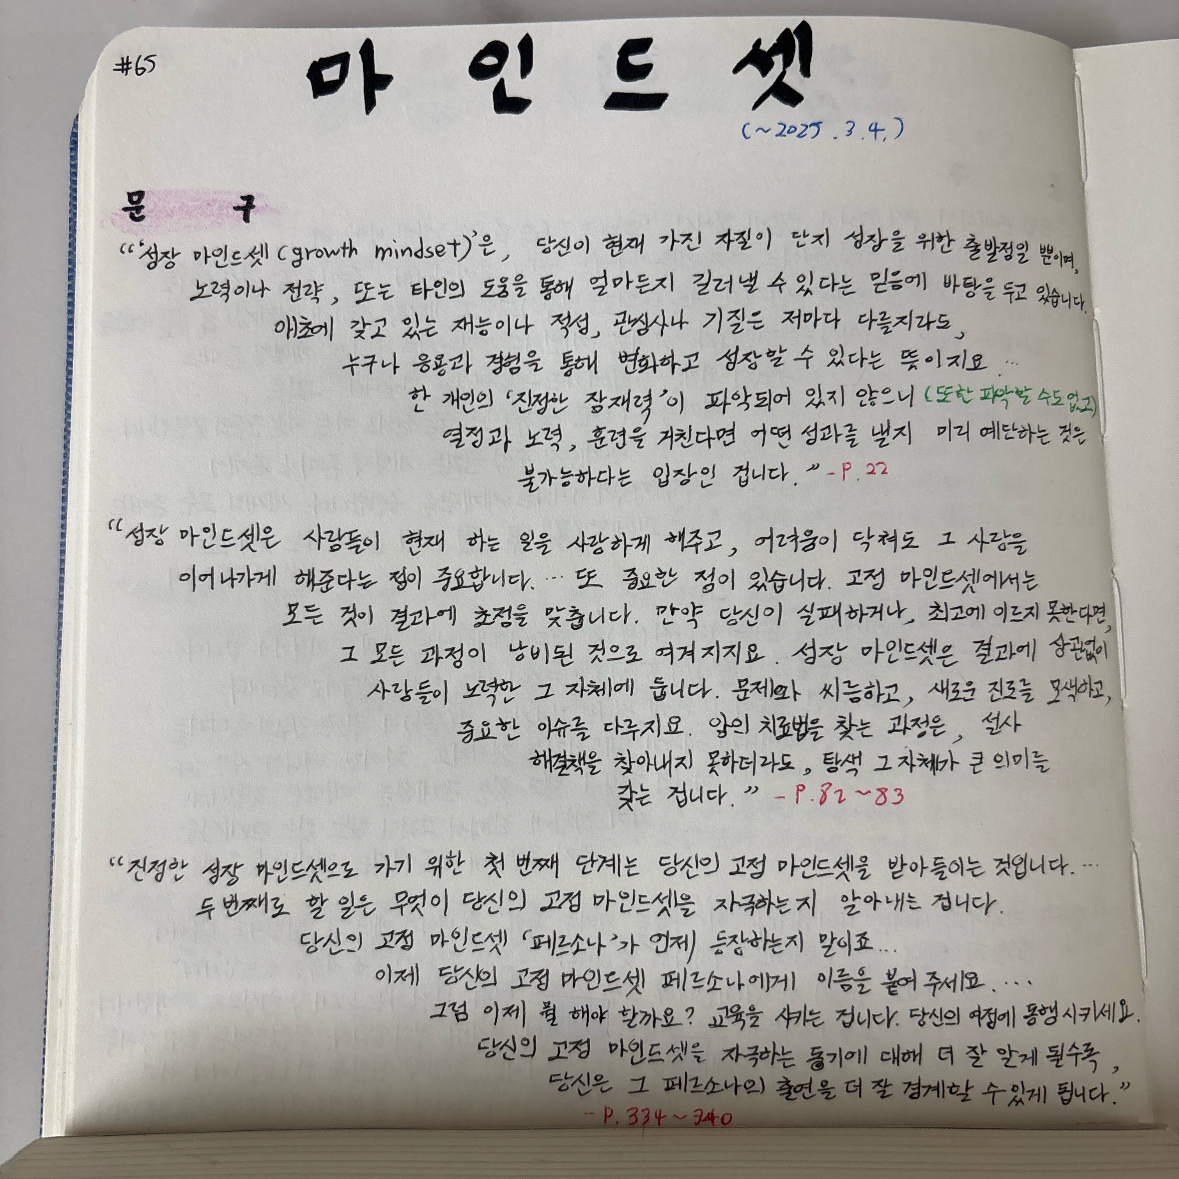 #65
마인드셋
(~2025.3.4.)
문 구
“‘성장 마인드셋(growth mindset)’은, 당신이 현재 가진 자질이 단지 성장을 위한 출발점일 뿐이며,
노력이나 전략, 또는 타인의 도움을 통해 얼마든지 길러낼 수 있다는 믿음에 바탕을 두고 있습니다.
애초에 갖고 있는 재능이나 적성, 관심사나 기질은 저마다 다를지라도,
누구나 응용과 경험을 통해 변화하고 성장할 수 있다는 뜻이지요 …
한 개인의 ‘진정한 잠재력’이 파악되어 있지 않으니 (또한 파악할 수도 없고)
열정과 노력, 훈련을 거친다면 어떤 성과를 낼지 미리 예단하는 것은
불가능하다는 입장인 겁니다.” -P.22
“성장 마인드셋은 사람들이 현재 하는 일을 사랑하게 해주고, 어려움이 닥쳐도 그 사랑을
이어나가게 해준다는 점이 중요합니다. … 또 중요한 점이 있습니다. 고정 마인드셋에서는
모든 것이 결과에 초점을 맞춥니다. 만약 당신이 실패하거나, 최고에 이르지 못한다면,
그 모든 과정이 낭비된 것으로 여겨지지요. 성장 마인드셋은 결과에 상관없이
사람들이 노력한 그 자체에 둡니다. 문제와 씨름하고, 새로운 진로를 모색하고,
중요한 이슈를 다루지요. 암의 치료법을 찾는 과정은, 설사
해결책을 찾아내지 못하더라도, 탐색 그 자체가 큰 의미를
갖는 겁니다.” -P.82~83
“진정한 성장 마인드셋으로 가기 위한 첫 번째 단계는 당신의 고정 마인드셋을 받아들이는 것입니다. …
두 번째로 할 일은 무엇이 당신의 고정 마인드셋을 자극하는지 알아내는 겁니다.
당신의 고정 마인드셋 ‘페르소나’가 언제 등장하는지 말이죠…
이제 당신의 고정 마인드셋 페르소나에게 이름을 붙여 주세요. …
그럼 이제 뭘 해야 할까요? 교육을 시키는 겁니다. 당신의 여정에 동행시키세요.
당신의 고정 마인드셋을 자극하는 동기에 대해 더 잘 알게 될수록,
당신은 그 페르소나의 출연을 더 잘 경계할 수 있게 됩니다.”
-P.334~340